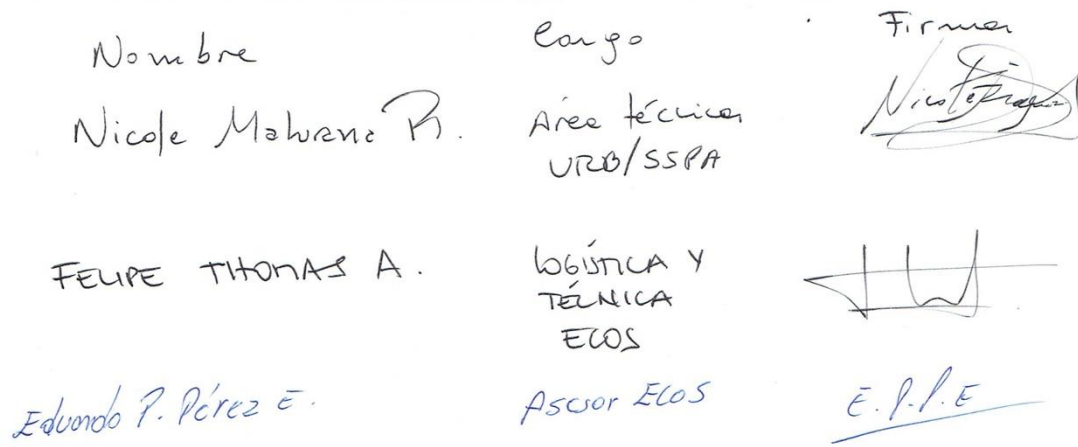 Nombre Cargo Firma
Nicole R. Área técnica
URB/SSPA
FELIPE THOMAS A. LOGÍSTICA Y
TÉCNICA
ECOS
Eduardo P. Pérez E. Asesor ECOS E.P.P.E